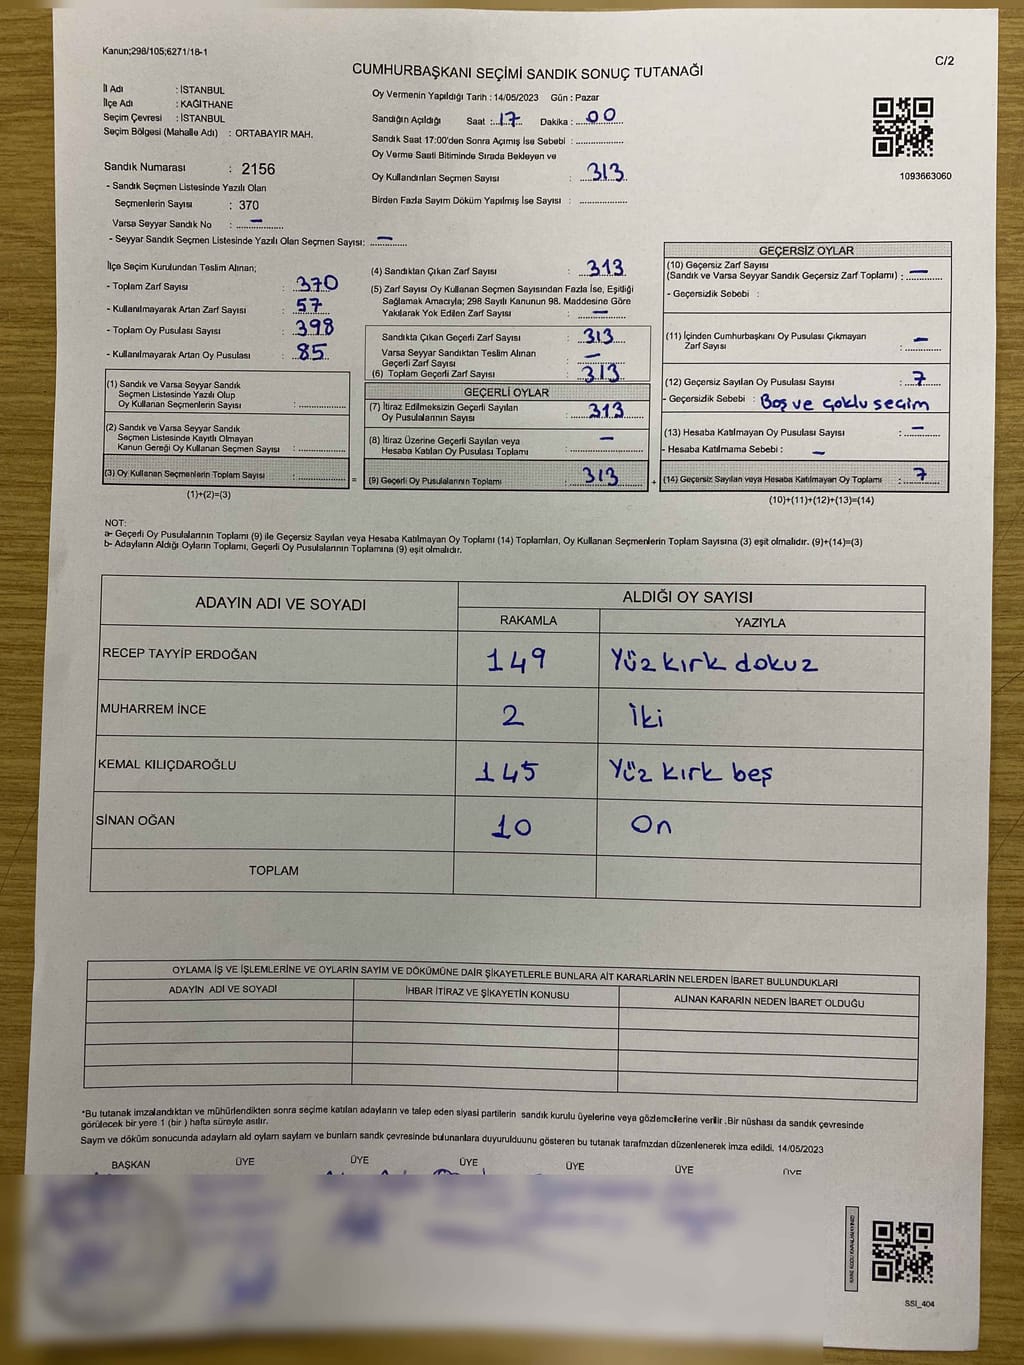 Kanun;298/105;6271/18-1
C/2
CUMHURBAŞKANI SEÇİMİ SANDIK SONUÇ TUTANAĞI
İl Adı : İSTANBUL
İlçe Adı : KAĞITHANE
Seçim Çevresi : İSTANBUL
Seçim Bölgesi (Mahalle Adı) : ORTABAYIR MAH.
Oy Vermenin Yapıldığı Tarih : 14/05/2023 Gün : Pazar
Sandığın Açıldığı Saat : 17 Dakika : 00
Sandık Saat 17:00'den Sonra Açımış İse Sebebi :
Oy Verme Saati Bitiminde Sırada Bekleyen ve
Oy Kullandırılan Seçmen Sayısı : 313
Birden Fazla Sayım Döküm Yapılmış İse Sayısı :
1093663060
Sandık Numarası : 2156
- Sandık Seçmen Listesinde Yazılı Olan
Seçmenlerin Sayısı : 370
Varsa Seyyar Sandık No : -
- Seyyar Sandık Seçmen Listesinde Yazılı Olan Seçmen Sayısı: -
İlçe Seçim Kurulundan Teslim Alınan;
- Toplam Zarf Sayısı : 370
- Kullanılmayarak Artan Zarf Sayısı : 57
- Toplam Oy Pusulası Sayısı : 398
- Kullanılmayarak Artan Oy Pusulası : 85
(1) Sandık ve Varsa Seyyar Sandık
Seçmen Listesinde Yazılı Olup
Oy Kullanan Seçmenlerin Sayısı :
(2) Sandık ve Varsa Seyyar Sandık
Seçmen Listesinde Kayıtlı Olmayan
Kanun Gereği Oy Kullanan Seçmen Sayısı :
(3) Oy Kullanan Seçmenlerin Toplam Sayısı :
(1)+(2)=(3)
(4) Sandıktan Çıkan Zarf Sayısı : 313
(5) Zarf Sayısı Oy Kullanan Seçmen Sayısından Fazla İse, Eşitliği
Sağlamak Amacıyla; 298 Sayılı Kanunun 98. Maddesine Göre
Yakılarak Yok Edilen Zarf Sayısı : -
Sandıkta Çıkan Geçerli Zarf Sayısı : 313
Varsa Seyyar Sandıktan Teslim Alınan
Geçerli Zarf Sayısı : -
(6) Toplam Geçerli Zarf Sayısı : 313
GEÇERLİ OYLAR
(7) İtiraz Edilmeksizin Geçerli Sayılan
Oy Pusulalarının Sayısı : 313
(8) İtiraz Üzerine Geçerli Sayılan veya
Hesaba Katılan Oy Pusulası Toplamı : -
= (9) Geçerli Oy Pusulalarının Toplamı : 313 +
GEÇERSİZ OYLAR
(10) Geçersiz Zarf Sayısı
(Sandık ve Varsa Seyyar Sandık Geçersiz Zarf Toplamı) : -
- Geçersizlik Sebebi :
(11) İçinden Cumhurbaşkanı Oy Pusulası Çıkmayan
Zarf Sayısı : -
(12) Geçersiz Sayılan Oy Pusulası Sayısı : 7
- Geçersizlik Sebebi : Boş ve çoklu seçim
(13) Hesaba Katılmayan Oy Pusulası Sayısı : -
- Hesaba Katılmama Sebebi : -
(14) Geçersiz Sayılan veya Hesaba Katılmayan Oy Toplamı : 7
(10)+(11)+(12)+(13)=(14)
NOT:
a- Geçerli Oy Pusulalarının Toplamı (9) ile Geçersiz Sayılan veya Hesaba Katılmayan Oy Toplamı (14) Toplamları, Oy Kullanan Seçmenlerin Toplam Sayısına (3) eşit olmalıdır. (9)+(14)=(3)
b- Adayların Aldığı Oyların Toplamı, Geçerli Oy Pusulalarının Toplamına (9) eşit olmalıdır.
ADAYIN ADI VE SOYADI ALDIĞI OY SAYISI
RAKAMLA YAZIYLA
RECEP TAYYİP ERDOĞAN 149 Yüz kırk dokuz
MUHARREM İNCE 2 iki
KEMAL KILIÇDAROĞLU 145 Yüz kırk beş
SİNAN OĞAN 10 On
TOPLAM
OYLAMA İŞ VE İŞLEMLERİNE VE OYLARIN SAYIM VE DÖKÜMÜNE DAİR ŞİKAYETLERLE BUNLARA AİT KARARLARIN NELERDEN İBARET BULUNDUKLARI
ADAYIN ADI VE SOYADI İHBAR İTİRAZ VE ŞİKAYETİN KONUSU ALINAN KARARIN NEDEN İBARET OLDUĞU
*Bu tutanak imzalandıktan ve mühürlendikten sonra seçime katılan adayların ve talep eden siyasi partilerin sandık kurulu üyelerine veya gözlemcilerine verilir .Bir nüshası da sandık çevresinde
görülecek bir yere 1 (bir ) hafta süreyle asılır.
Sayım ve döküm sonucunda adayların ald oyların sayların ve bunların sandk çevresinde bulunanlara duyurulduunu gösteren bu tutanak tarafmzdan düzenlenerek imza edildi. 14/05/2023
BAŞKAN ÜYE ÜYE ÜYE ÜYE ÜYE ÜYE
SSI_404